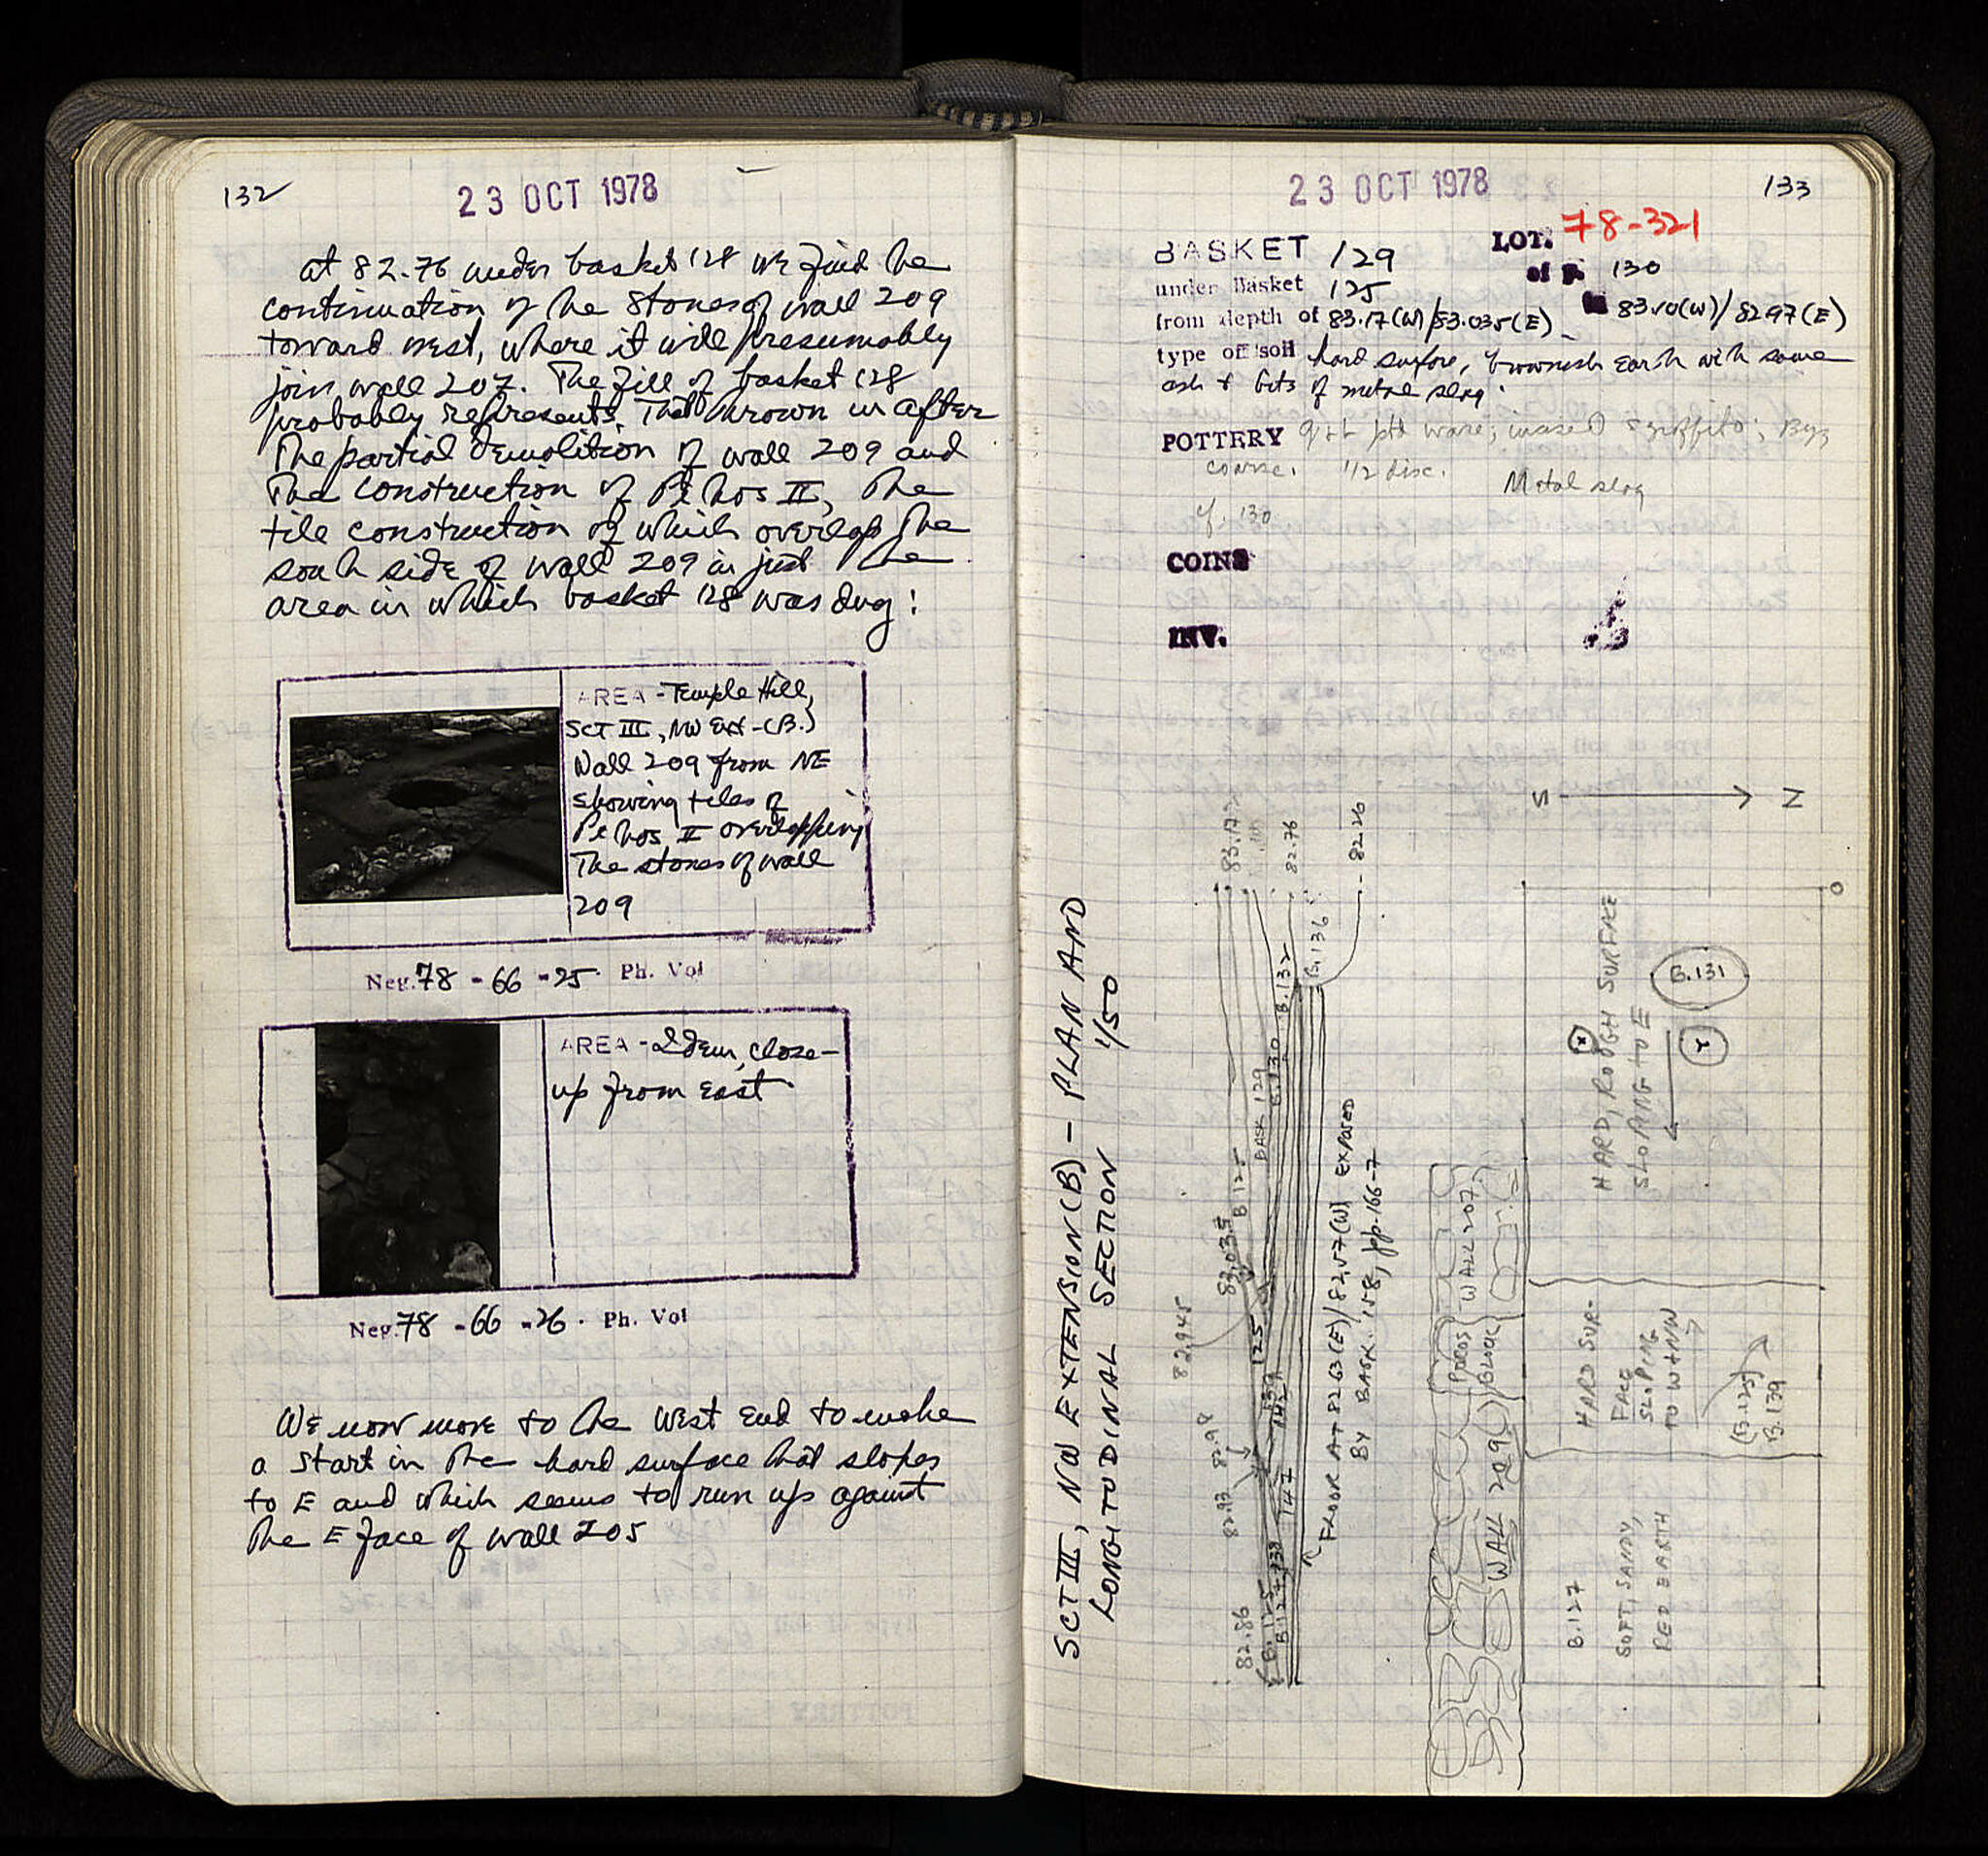 132
23 OCT 1978
at 82.76 under basket 128 we find the
continuation of the stones of wall 209
toward west, where it will presumably
join wall 207. The fill of basket 128
probably represents that thrown in after
the partial demolition of wall 209 and
the construction of Pithos II, the
tile construction of which overlap the
south side of wall 209 in just the
area in which basket 128 was dug!
AREA - Temple Hill,
SCT III, NW Ext-(B.)
Wall 209 from NE
showing tiles of
Pithos II overlapping
the stones of wall
209
Neg. 78 - 66 - 25. Ph. Vol
AREA - Idem, close-
up from east
Neg. 78 - 66 - 26. Ph. Vol
We now move to the West End to make
a start in the hard surface that slopes
to E and which seems to run up against
the E face of wall 205
23 OCT 1978
133
LOT. 78-321
BASKET 129
of p. 130
under Basket 125
from depth of 83.17(W)/83.035(E) - 83.10(W)/82.97(E)
type of soil hard surface, brownish earth with some
ash & bits of metal slag.
POTTERY g+l ptd ware; incised sgraffito; Byz
coarse. 1/2 disc. Metal slag
cf. 130
COINS
INV.
S N
SCT III, NW EXTENSION (B) - PLAN AND
LONGITUDINAL SECTION 1/50
83.17
82.76
82.26
B.136
B.132
B.130
BASK 129
B 125
83.035
82.945
125
139
142
82.98
82.93
147
82.86
B.125
B.127+138
FLOOR AT 82.63(E)/82.57(W) EXPOSED
BY BASK. 158, pp. 166-7
0
HARD, ROUGH SURFACE
SLOPING TO E
B.131
x
Y
WALL 207
POROS
BLOCK
WALL 209
HARD SUR-
FACE
SLOPING
TO W+NW
(B.125)
B.139
B.127
SOFT, SANDY,
RED EARTH